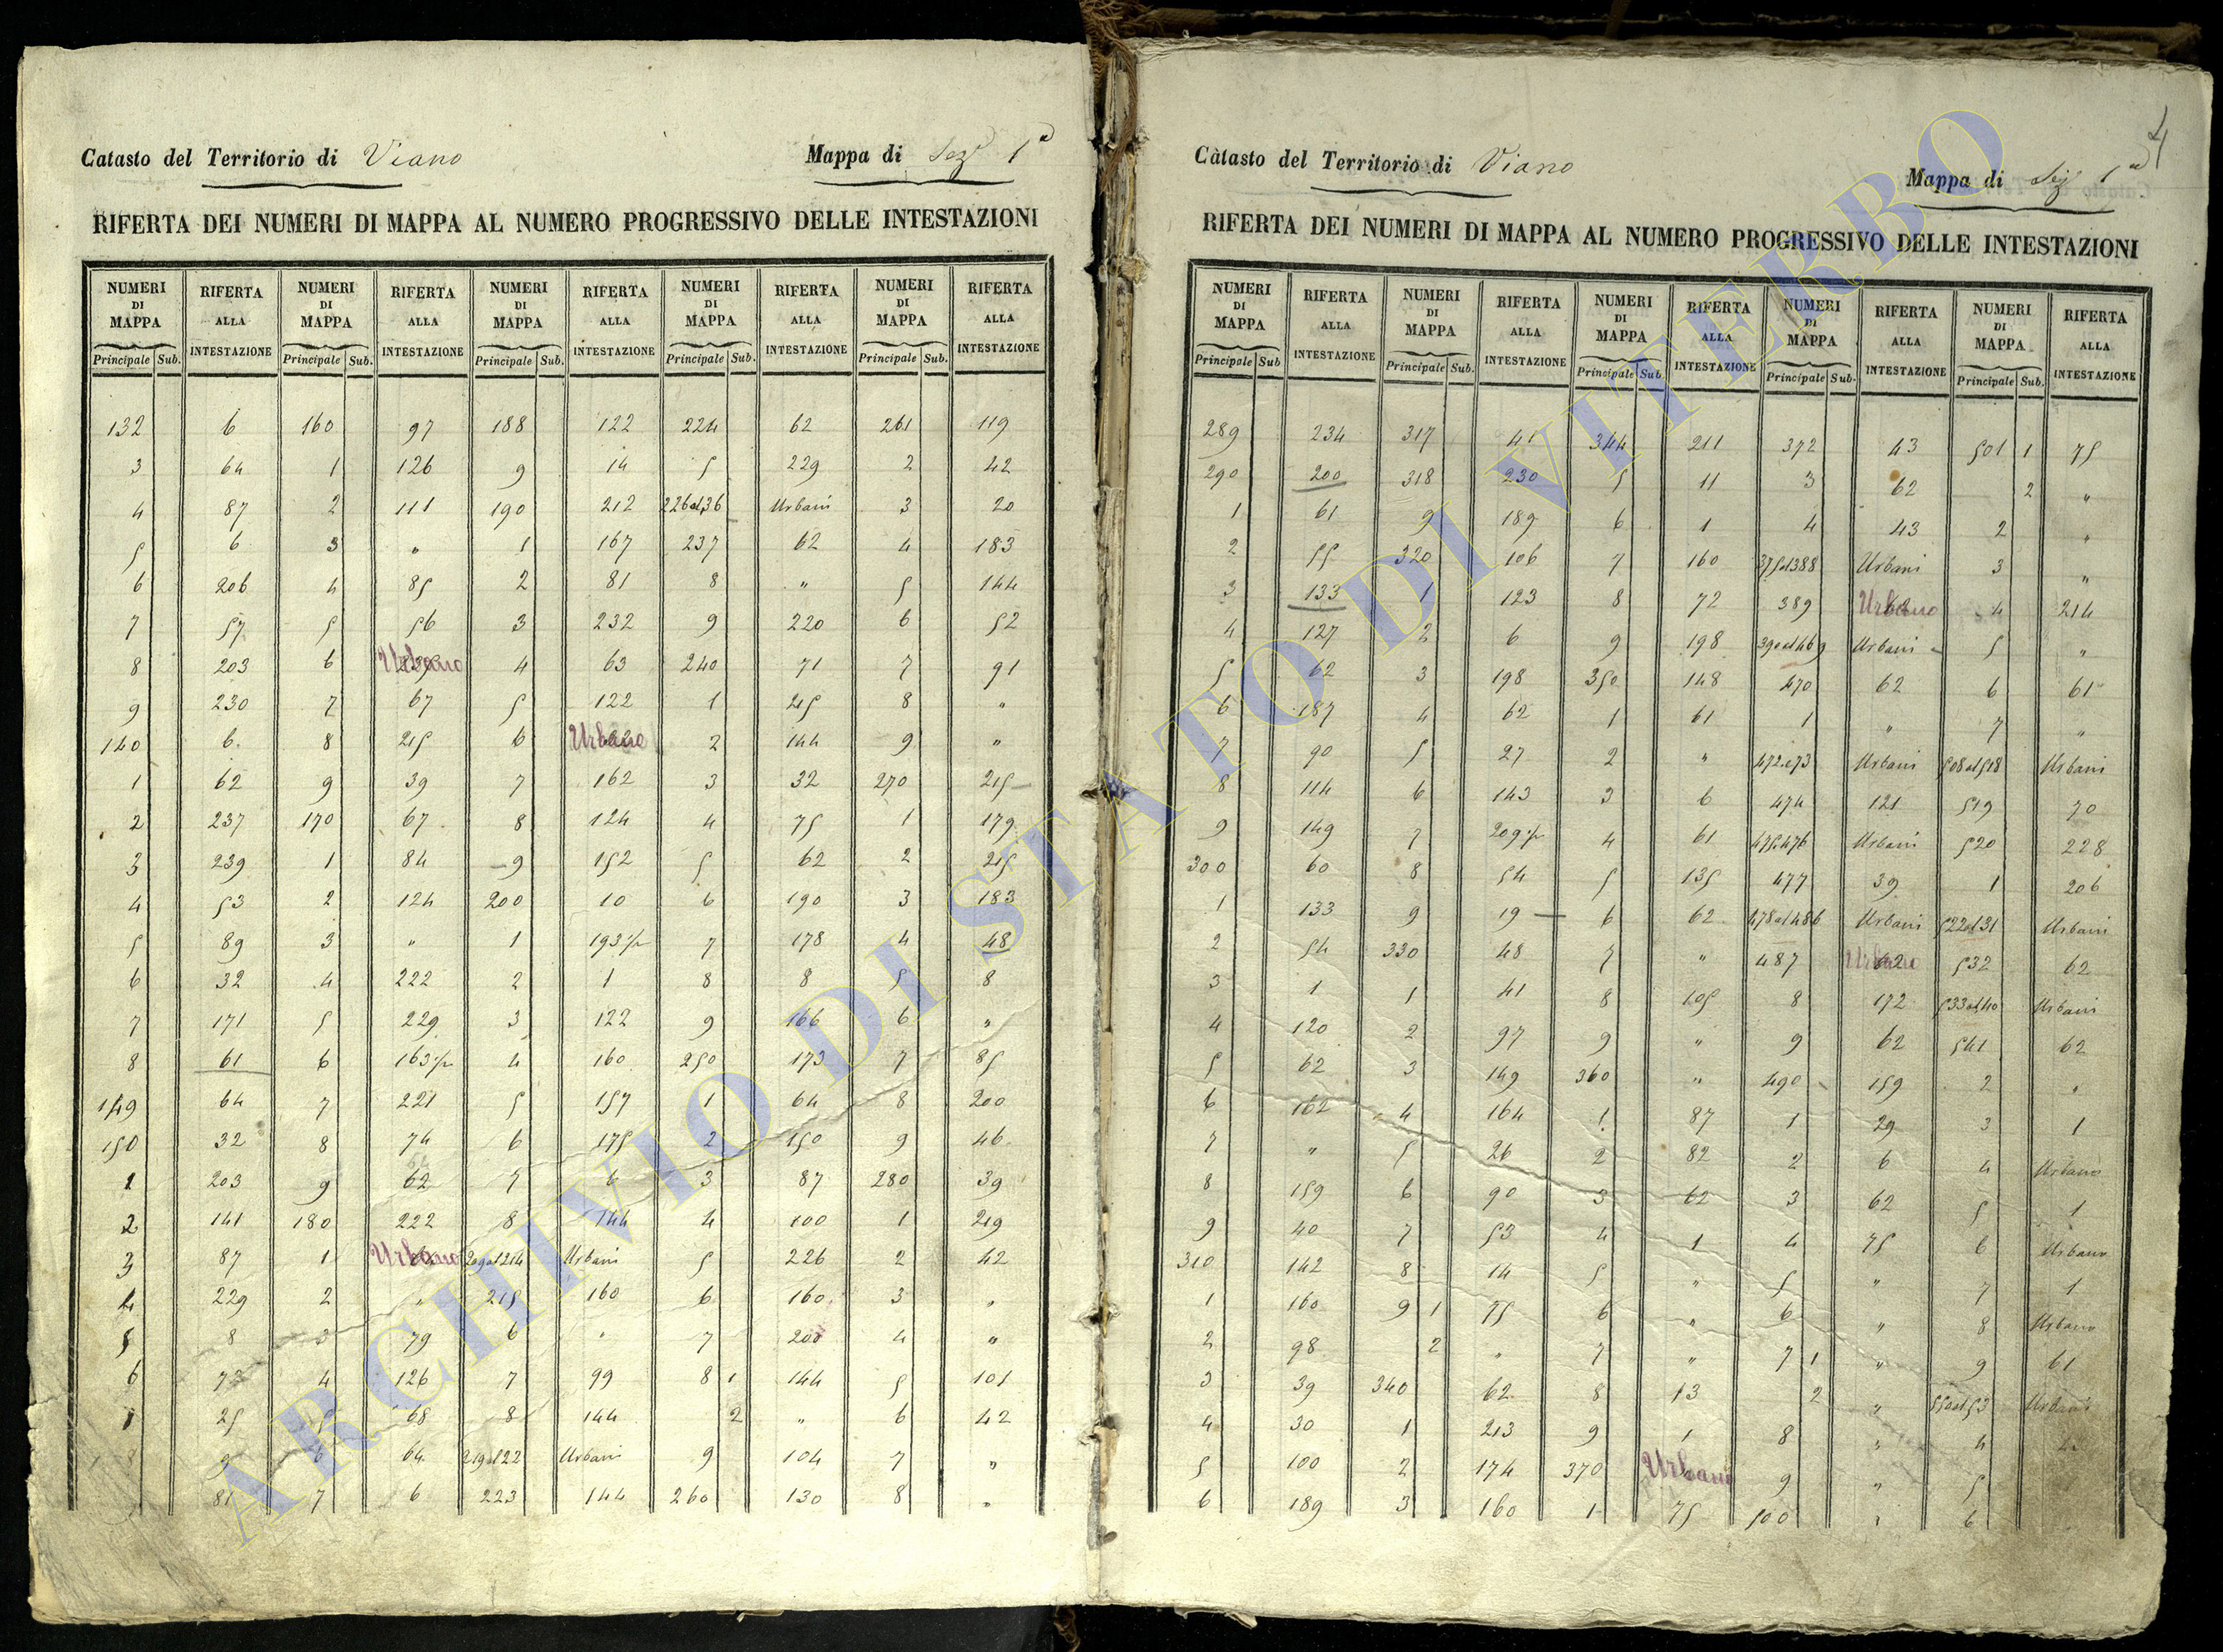 Catasto del Territorio di Viano Mappa di Sez.e 1a
RIFERTA DEI NUMERI DI MAPPA AL NUMERO PROGRESSIVO DELLE INTESTAZIONI
NUMERI DI MAPPA RIFERTA ALLA INTESTAZIONE NUMERI DI MAPPA RIFERTA ALLA INTESTAZIONE NUMERI DI MAPPA RIFERTA ALLA INTESTAZIONE NUMERI DI MAPPA RIFERTA ALLA INTESTAZIONE NUMERI DI MAPPA RIFERTA ALLA INTESTAZIONE
Principale Sub. Principale Sub. Principale Sub. Principale Sub. Principale Sub.
132 6 160 97 188 122 224 62 261 119
3 64 1 126 9 14 5 229 2 42
4 87 2 111 190 212 226al36 Urbani 3 20
5 6 3 " 1 167 237 62 4 183
6 206 4 85 2 81 8 " 5 144
7 57 5 56 3 232 9 220 6 52
8 203 6 Urbano 4 63 240 71 7 91
9 230 7 67 5 122 1 215 8 "
140 6 8 215 6 Urbano 2 144 9 "
1 62 9 39 7 162 3 32 270 215
2 237 170 67 8 124 4 75 1 179
3 239 1 84 9 152 5 62 2 215
4 53 2 124 200 10 6 190 3 183
5 89 3 " 1 193 7 178 4 48
6 32 4 222 2 1 8 8 5 8
7 171 5 229 3 122 9 166 6 "
8 61 6 163 4 160 250 173 7 85
149 64 7 221 5 157 1 64 8 200
150 32 8 74 6 175 2 150 9 46
1 203 9 62 7 6 3 87 280 39
2 141 180 222 8 144 4 100 1 219
3 87 1 Urbano 209al214 Urbani 5 226 2 42
4 229 2 " 215 160 6 160 3 "
5 8 3 79 6 " 7 200 4 "
6 73 4 126 7 99 8 1 144 5 101
25 5 68 8 144 2 " 6 42
8 9 6 64 219al22 Urbani 9 104 7 "
81 7 6 223 144 260 130 8 "
4
Catasto del Territorio di Viano Mappa di Sez.e 1a
RIFERTA DEI NUMERI DI MAPPA AL NUMERO PROGRESSIVO DELLE INTESTAZIONI
NUMERI DI MAPPA RIFERTA ALLA INTESTAZIONE NUMERI DI MAPPA RIFERTA ALLA INTESTAZIONE NUMERI DI MAPPA RIFERTA ALLA INTESTAZIONE NUMERI DI MAPPA RIFERTA ALLA INTESTAZIONE NUMERI DI MAPPA RIFERTA ALLA INTESTAZIONE
Principale Sub Principale Sub. Principale Sub. Principale Sub. Principale Sub.
289 234 317 41 344 211 372 43 501 1 75
290 200 318 230 5 11 3 62 2 "
1 61 9 189 6 1 4 43 2 "
2 55 320 106 7 160 375al388 Urbani 3 "
3 133 1 123 8 72 389 Urbano 4 214
4 127 2 6 9 198 390al469 Urbani 5 "
5 62 3 198 350 148 470 62 6 61
6 187 4 62 1 61 1 " 7 "
7 90 5 27 2 " 472e73 Urbani 508al518 Urbani
8 114 6 143 3 6 474 121 519 70
9 149 7 209 4 61 475e476 Urbani 520 228
300 60 8 54 5 135 477 39 1 206
1 133 9 19 6 62 478al486 Urbani 522al31 Urbani
2 54 330 48 7 " 487 Urbano 532 62
3 1 1 41 8 105 8 172 533al40 Urbani
4 120 2 97 9 " 9 62 541 62
5 62 3 149 360 " 490 159 2 "
6 162 4 164 1 87 1 29 3 1
7 " 5 26 2 82 2 6 4 Urbano
8 159 6 90 3 62 3 62 5 1
9 40 7 53 4 1 4 75 6 Urbano
310 142 8 14 5 " 5 " 7 1
1 160 9 1 75 6 " 6 " 8 Urbano
2 98 2 " 7 " 7 1 " 9 61
3 39 340 62 8 13 2 " 550al53 Urbani
4 30 1 213 9 1 8 " 4
5 100 2 174 370 Urbano 9 " 5
6 189 3 160 1 75 500 " 6
ARCHIVIO DI STATO DI VITERBO